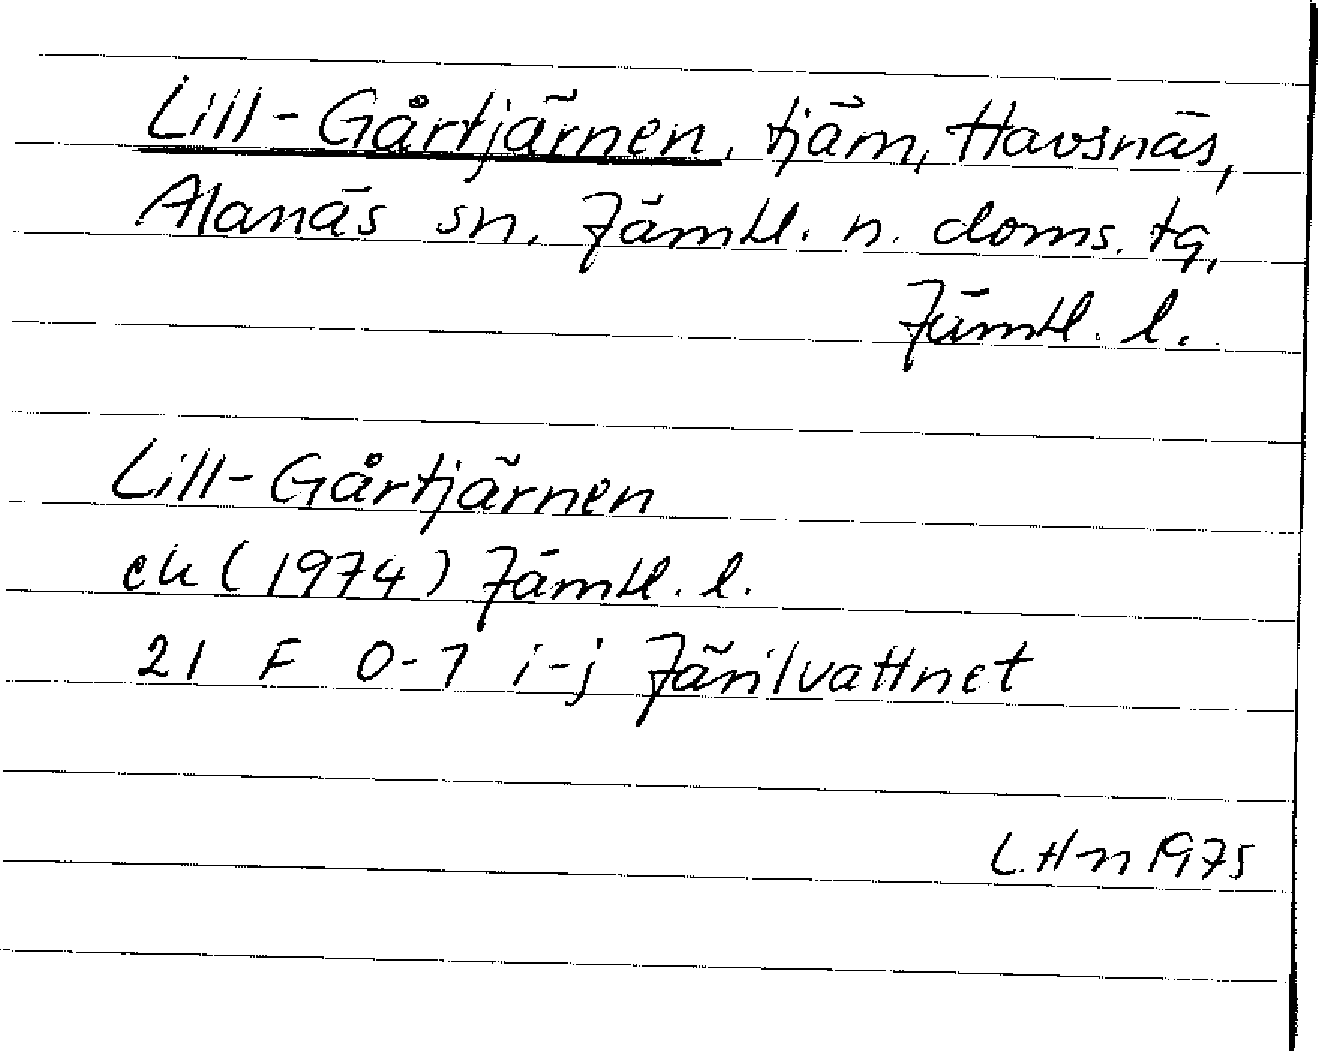 Lill-Gårtjärnen, tjärn, Havsnäs,
Alanäs sn. Jämtl. n. doms. tg,
Jämtl. l.
Lill-Gårtjärnen
ek (1974) Jämtl. l.
21 F 0-1 i-j Järilvattnet
L.Hn 1975